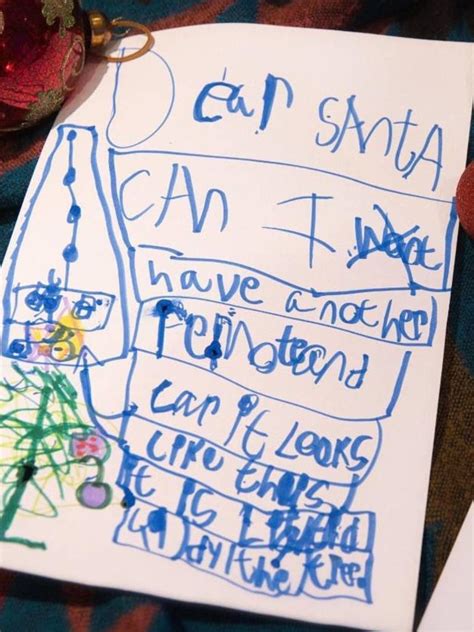 Dear SAntA
CAn I
have another
can it Looks
Like this
it is
the tree